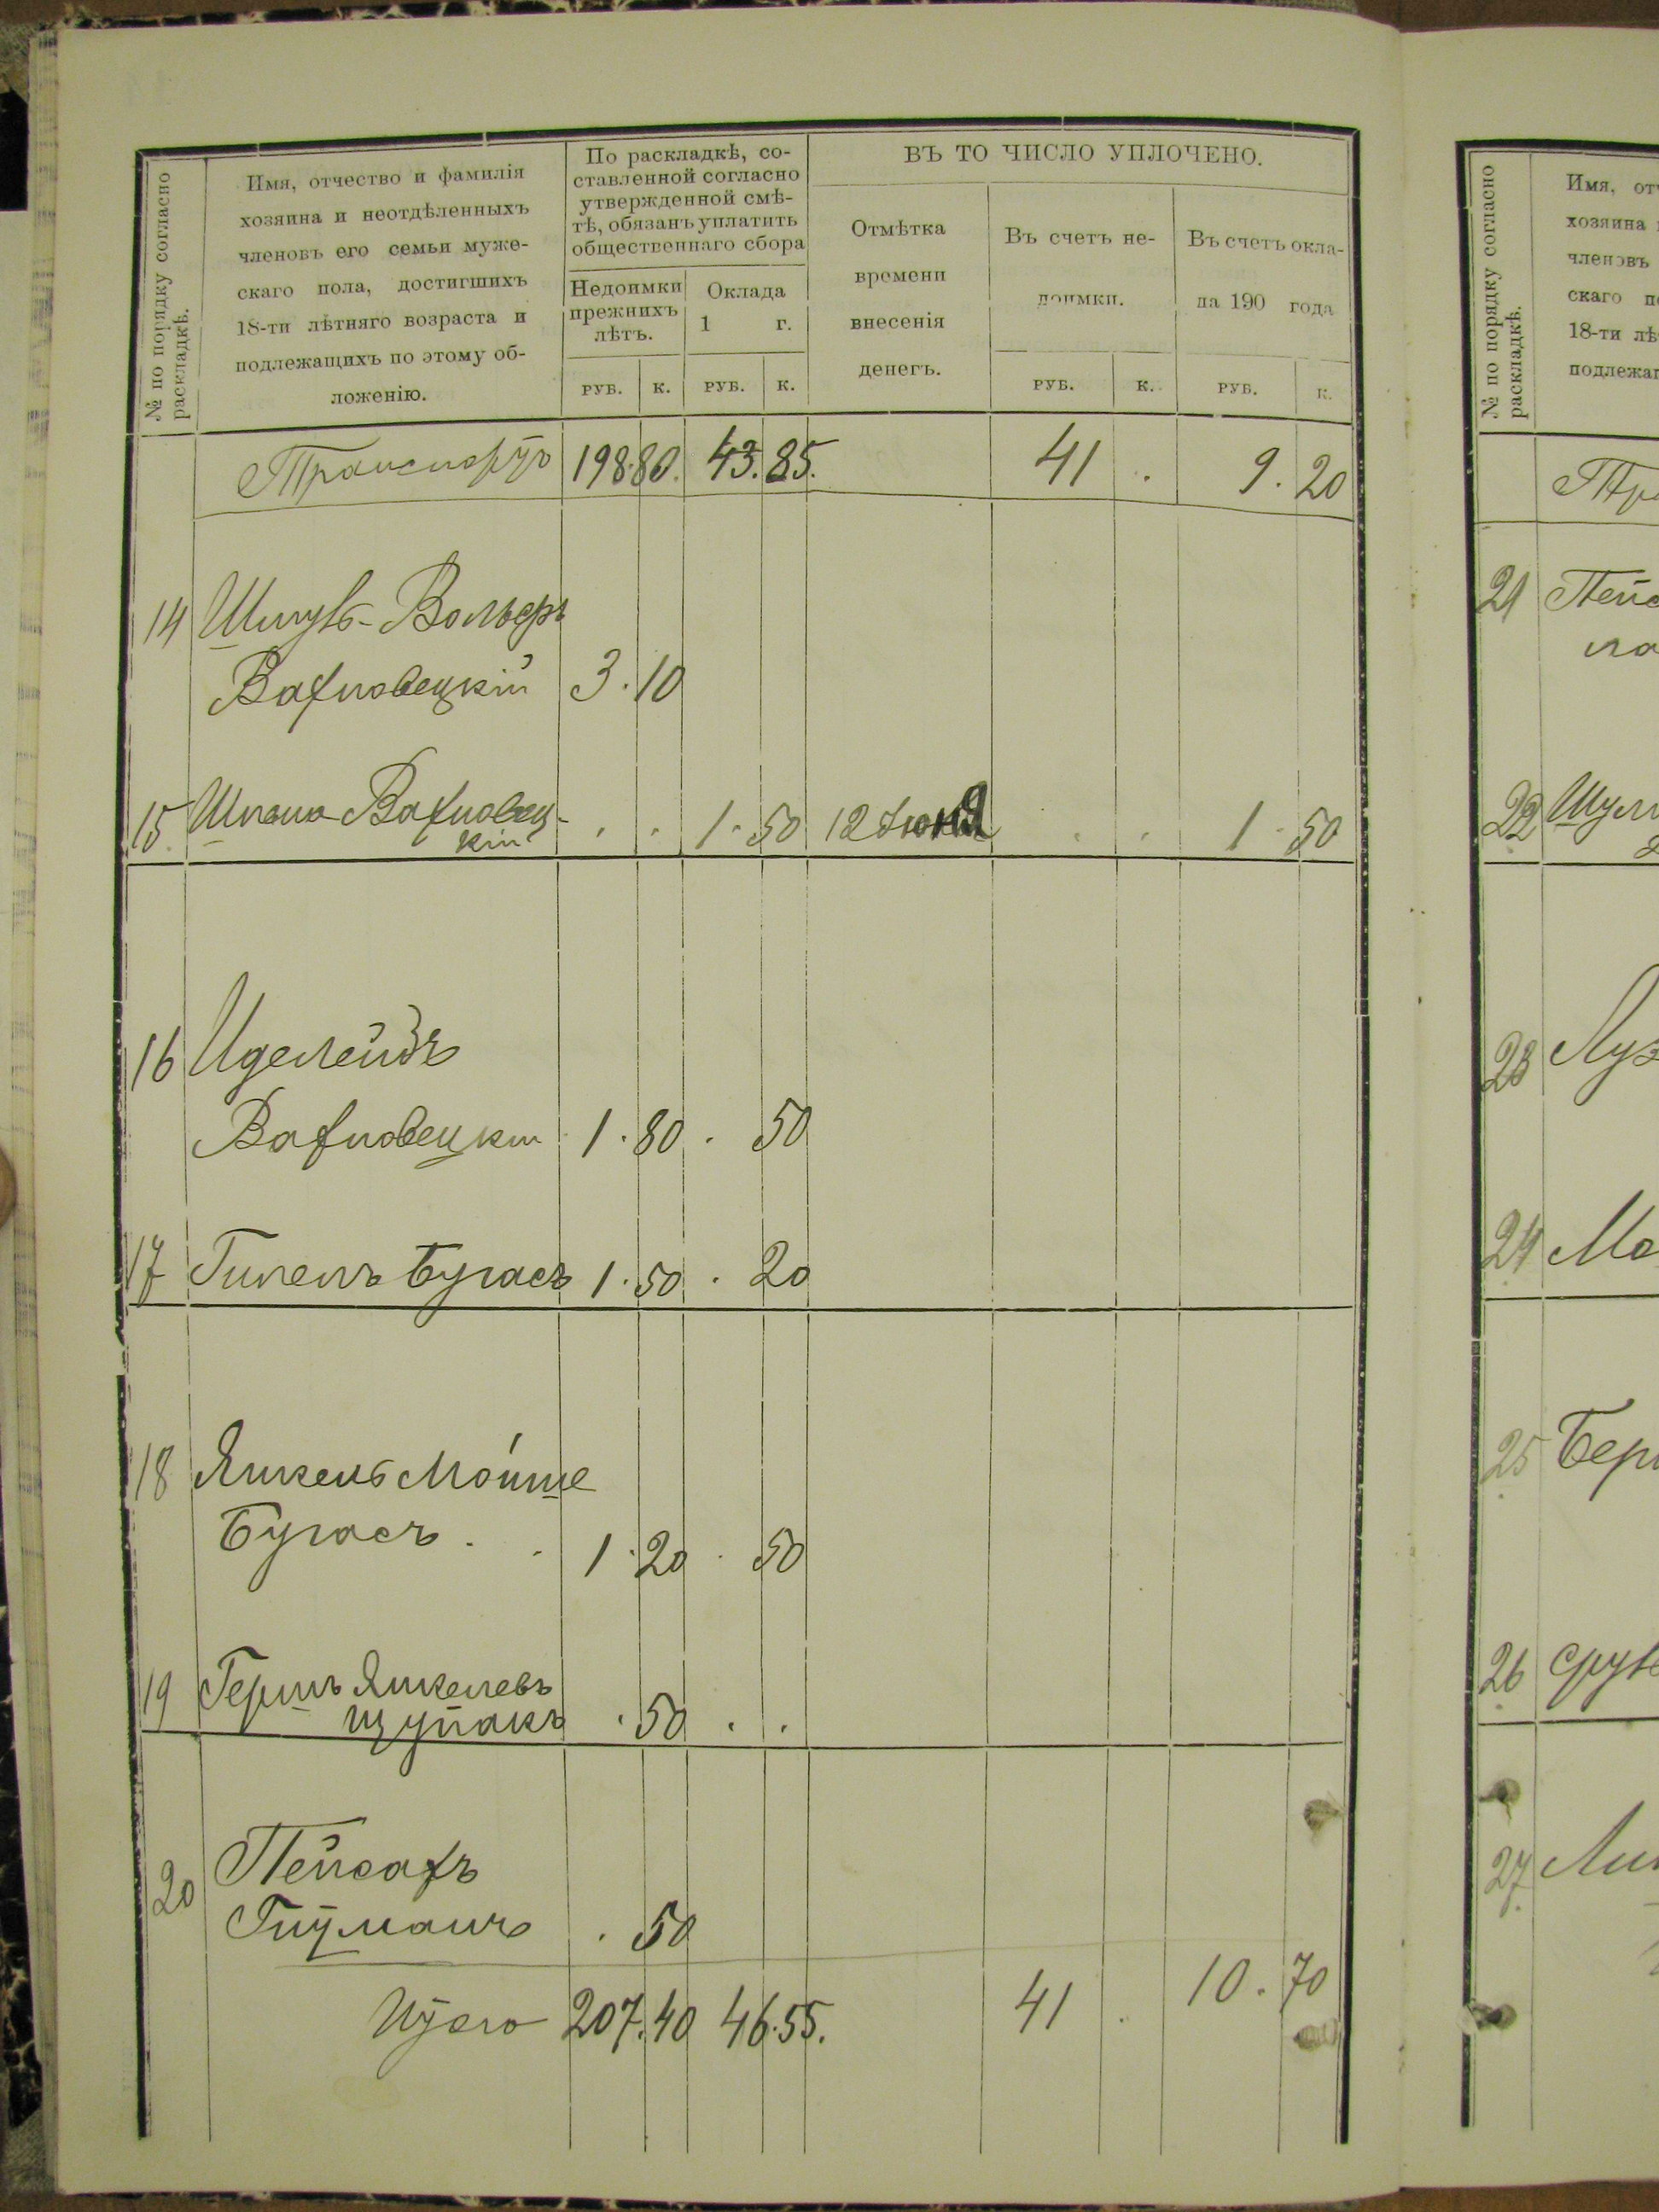 № по порядку согласно
раскладкѣ.
Имя, отчество и фамилія
хозяина и неотдѣленныхъ
членовъ его семьи муже-
скаго пола, достигшихъ
18-ти лѣтняго возраста и
подлежащихъ по этому об-
ложенію.
По раскладкѣ, со-
ставленной согласно
утвержденной смѣ-
тѣ, обязанъ уплатить
общественнаго сбора
Недоимки
прежнихъ
лѣтъ.
Оклада
1 г.
РУБ. К. РУБ. К.
ВЪ ТО ЧИСЛО УПЛОЧЕНО.
Отмѣтка
времени
внесенія
денегъ.
Въ счетъ не-
доимки.
Въ счетъ окла-
да 190 года
РУБ. К. РУБ. К.
Транспортъ 198.80. 43.85. 41 . 9.20
14 Шмуль-Вольфъ
Вахновецкій 3.10
15 Вахновец-
кій . . 1.50 12 Іюня . . 1.50
16
Вахновецкій 1.80 . 50
17 Гилель Бугасъ 1.50 . 20
18 Янкель Мойше
Бугасъ . . 1.20 . 50
19 Гершъ Янкелевъ
Щупакъ .50 . .
20 Пейсахъ
Гитманъ . 50
Итого 207.40 46.55. 41 . 10.70
№ по порядку согласно
раскладкѣ.
Имя, от
хозяина
членовъ
скаго
18-ти лѣ
подлежа
21
22
23
24
25
26
27